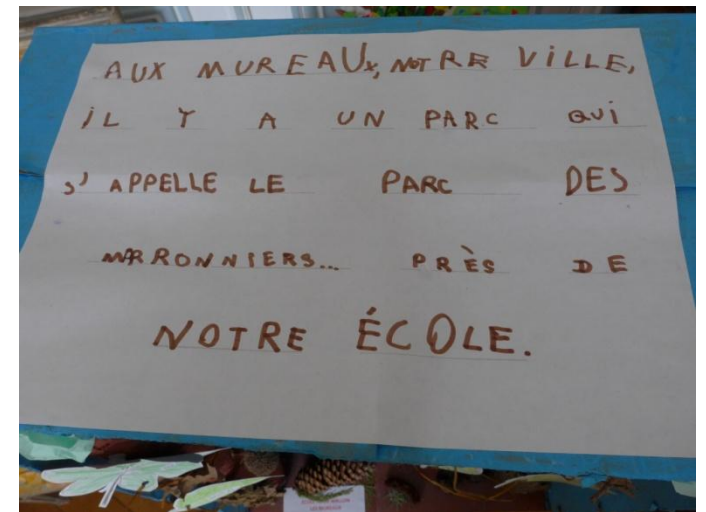 AUX MUREAUX, NOTRE VILLE,
IL Y A UN PARC QUI
S'APPELLE LE PARC DES
MARRONNIERS... PRÈS DE
NOTRE ÉCOLE.